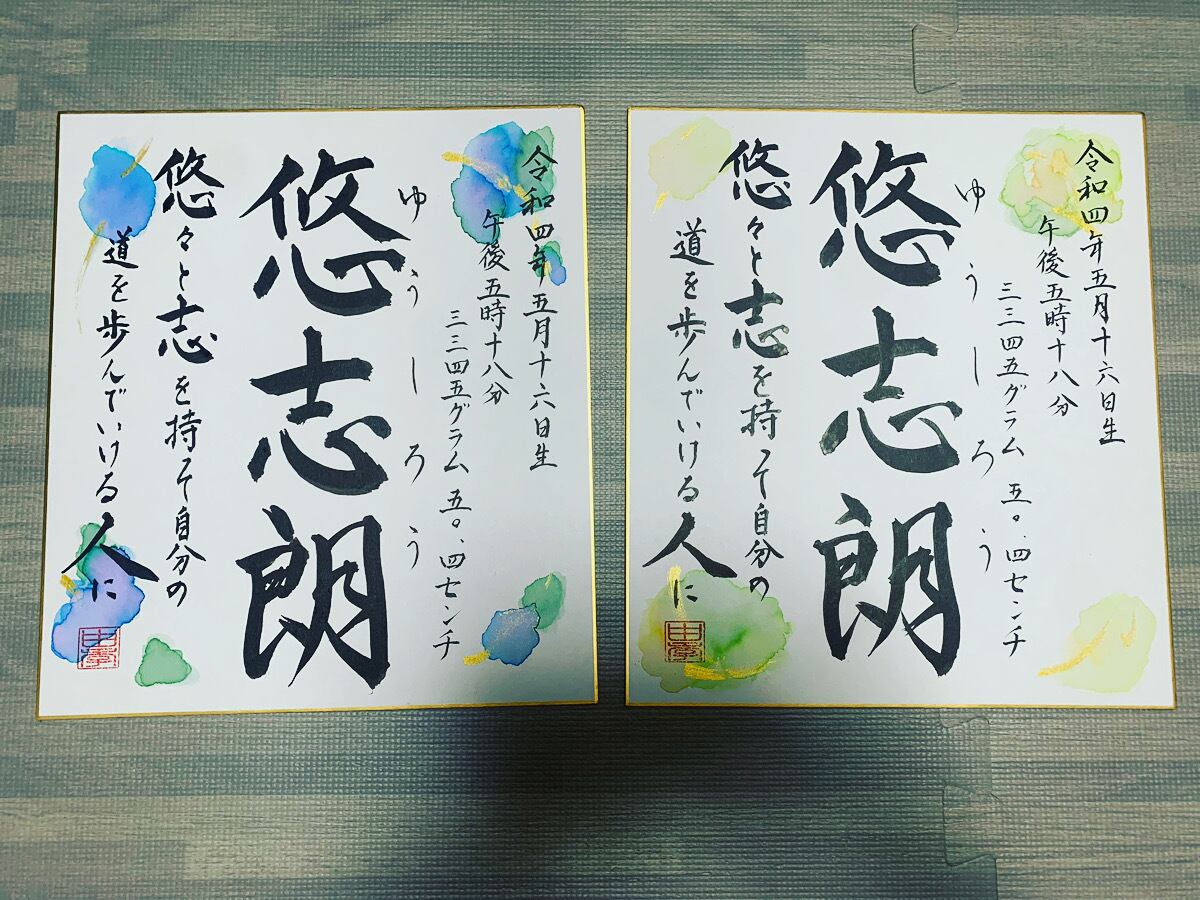 令和四年五月十六日生
午後五時十八分
三三四五グラム 五〇.四センチ
ゆうしろう
悠志朗
悠々と志を持って自分の
道を歩んでいける人に
令和四年五月十六日生
午後五時十八分
三三四五グラム 五〇.四センチ
ゆうしろう
悠志朗
悠々と志を持って自分の
道を歩んでいける人に